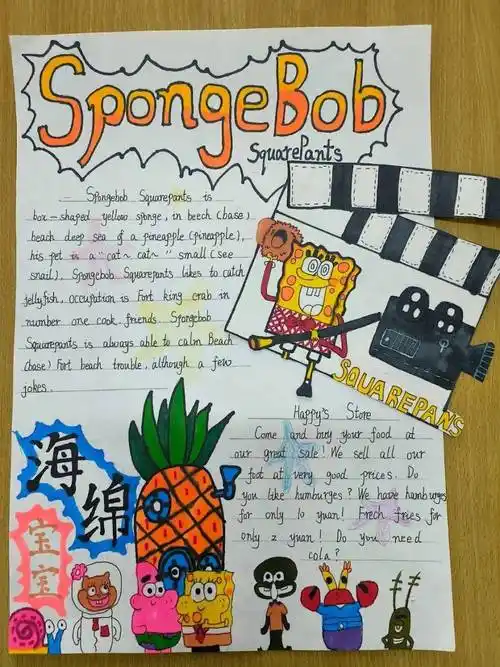 SpongeBob
SquarePants
Spongebob Squarepants is
box-shaped yellow sponge, in beech (base)
beach deep sea of a peneapple (pineapple),
his pet is a "cat~ cat~" small (see
snail). Spongebob Squarepants likes to catch
jellyfish, occupation is Fort king crab in
number one cook. friends Spongebob
Squarepants is always able to calm Beach
(base) Fort beach trouble, although a few
jokes.
SQUAREPANS
Happy's Store
Come and buy your food at
our great sale! We sell all our
foot at very good prices. Do
you like humburges? We have humburges
for only 10 yuan! Frech fries for
only 2 yuan! Do you need
cola?
海绵
宝宝